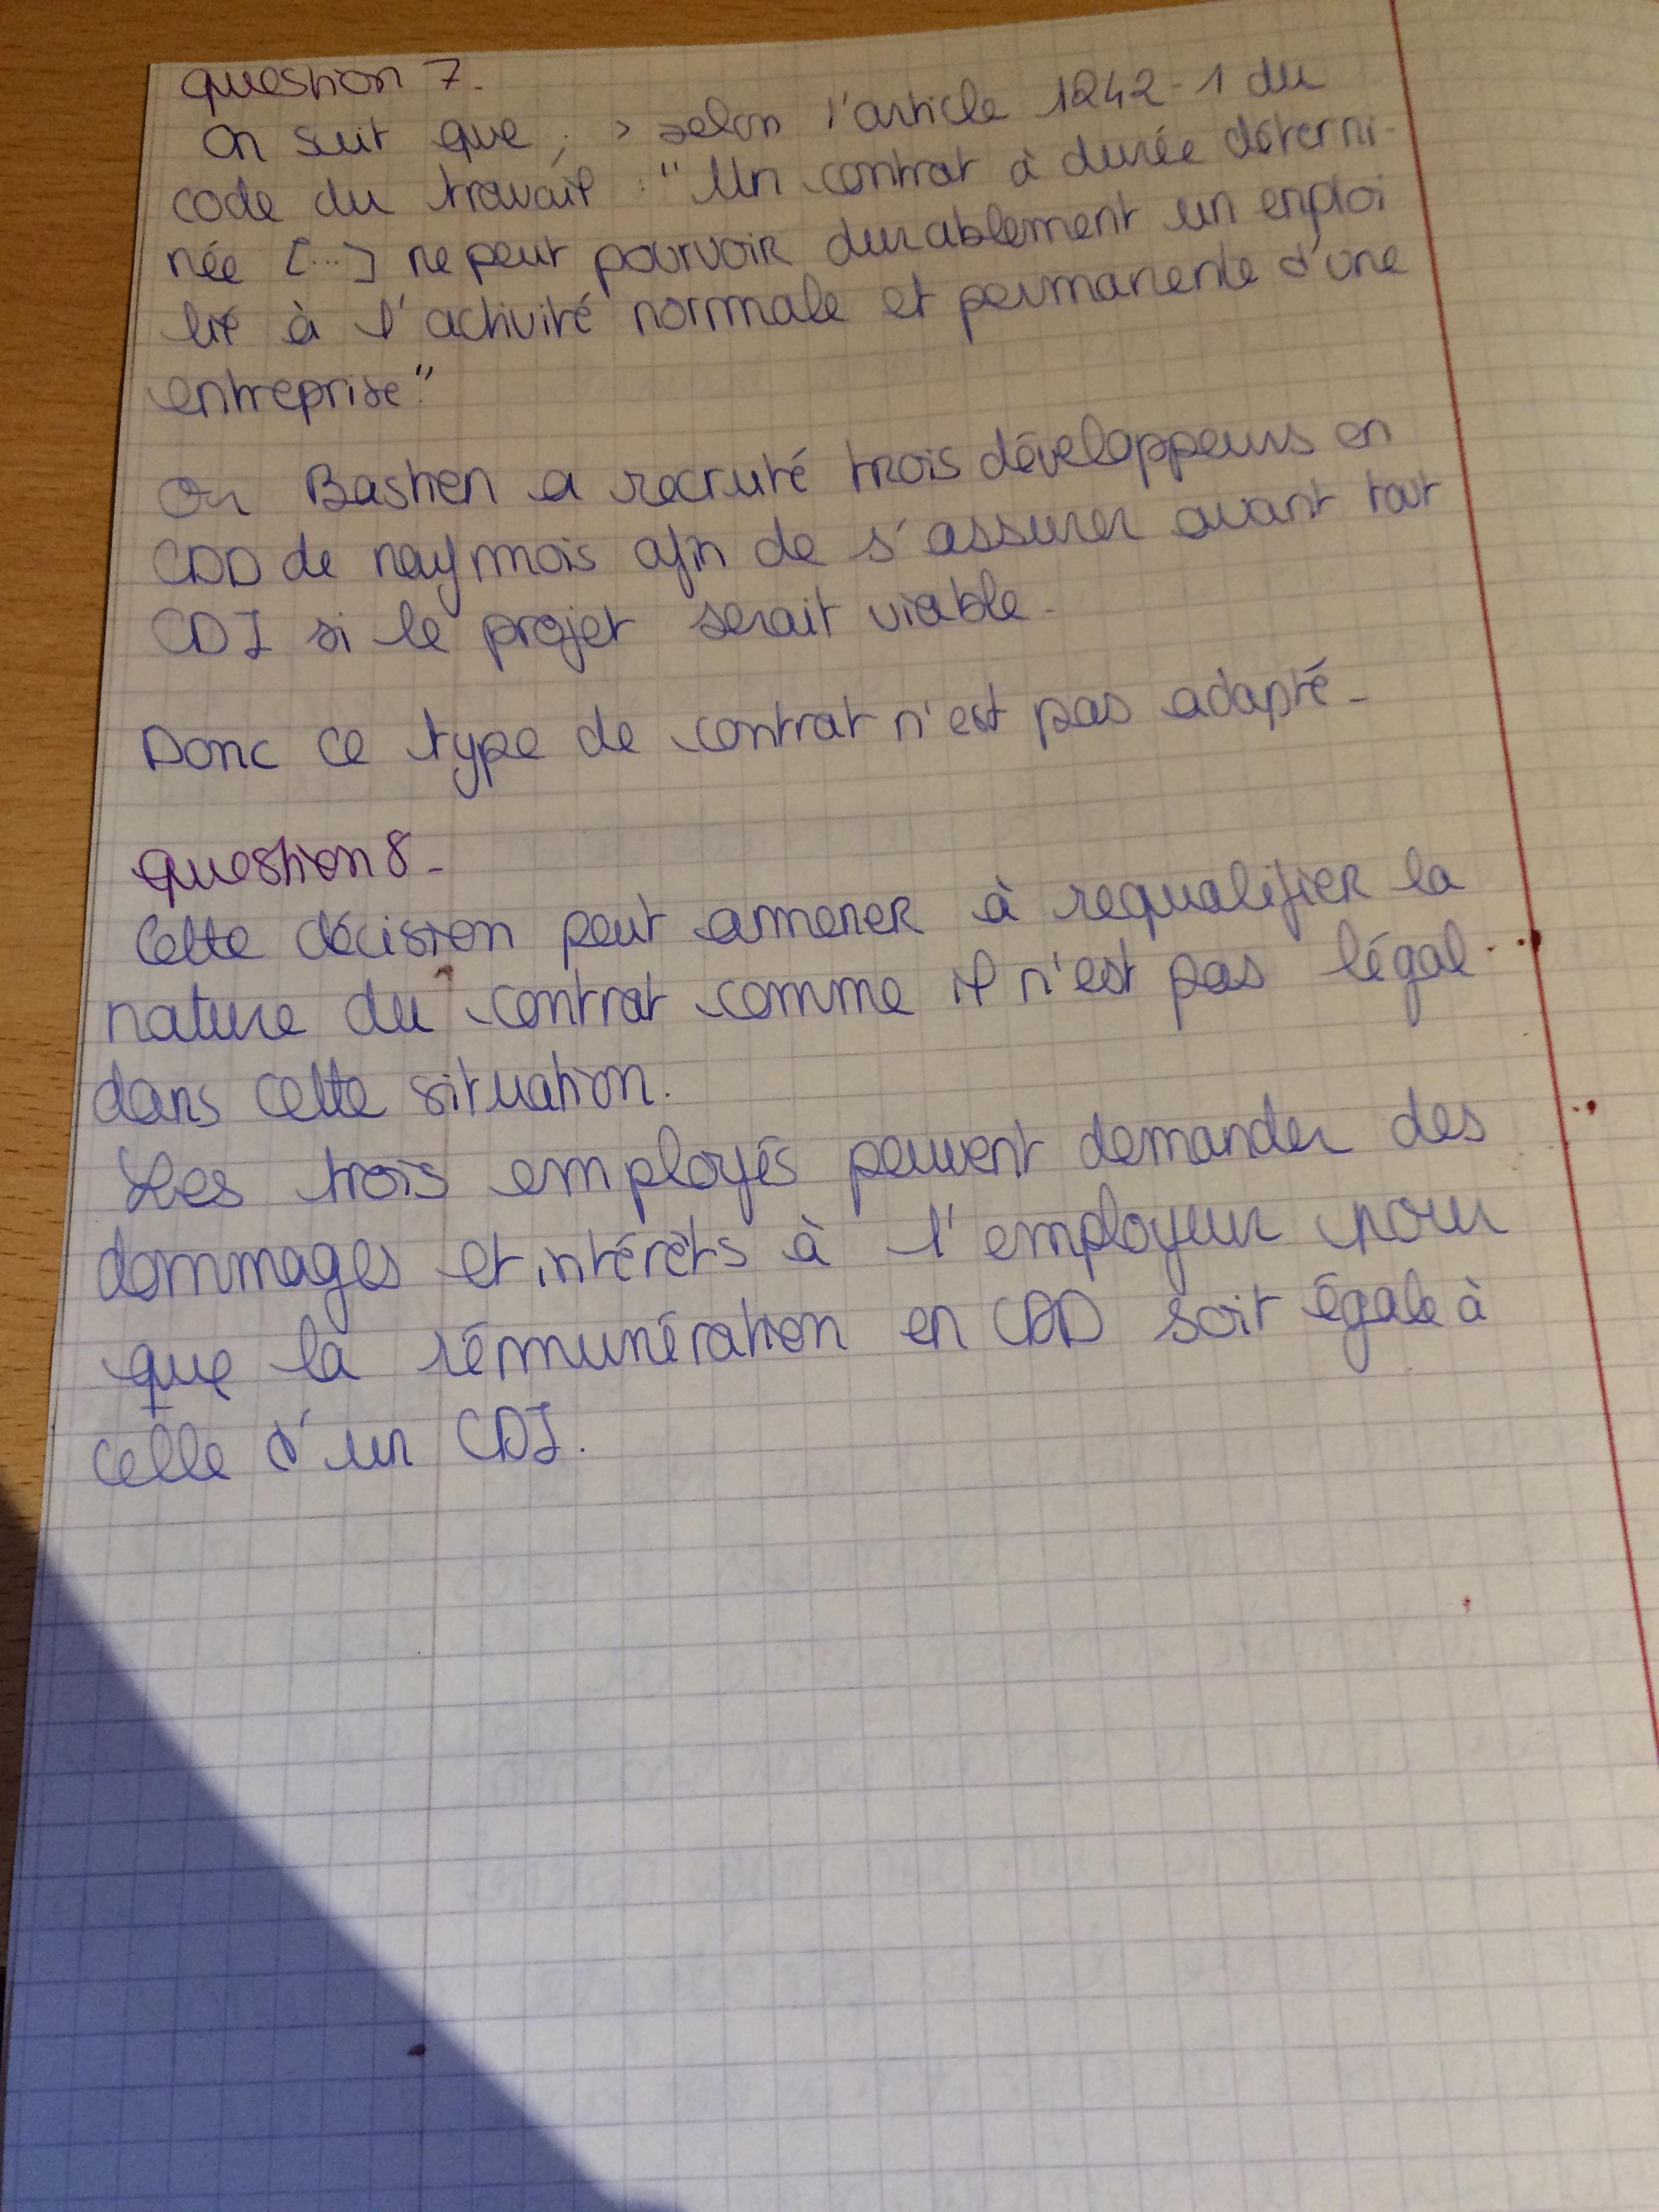 question 7.
On sait que : > selon l'article 1242-1 du
code du travail : "Un contrat à durée détermi-
née [...] ne peut pourvoir durablement un emploi
lié à l'activité normale et permanente d'une
entreprise"
Or Bastien a recruté trois développeurs en
CDD de neuf mois afin de s'assurer avant tout
CDI si le projet serait viable.
Donc ce type de contrat n'est pas adapté.
question 8.
Cette décision peut amener à requalifier la
nature du contrat comme il n'est pas légal
dans cette situation.
Les trois employés peuvent demander des
dommages et intérêts à l'employeur pour
que la rémunération en CDD soit égale à
celle d'un CDI.